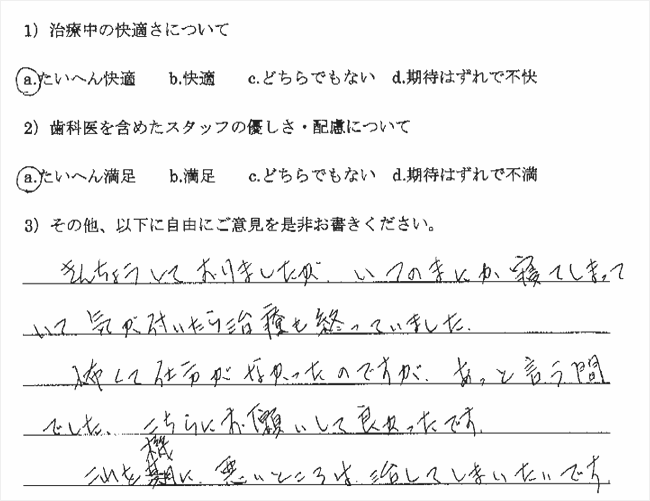 1）治療中の快適さについて
a.たいへん快適　b.快適　c.どちらでもない　d.期待はずれで不快
2）歯科医を含めたスタッフの優しさ・配慮について
a.たいへん満足　b.満足　c.どちらでもない　d.期待はずれで不満
3）その他、以下に自由にご意見を是非お書きください。
きんちょうしておりましたが、いつのまにか寝てしまって
いて気が付いたら治療も終っていました。
怖くて仕方がなかったのですが、あっと言う間
でした、こちらにお願いして良かったです。
機
これを期に、悪いところは、治してしまいたいです